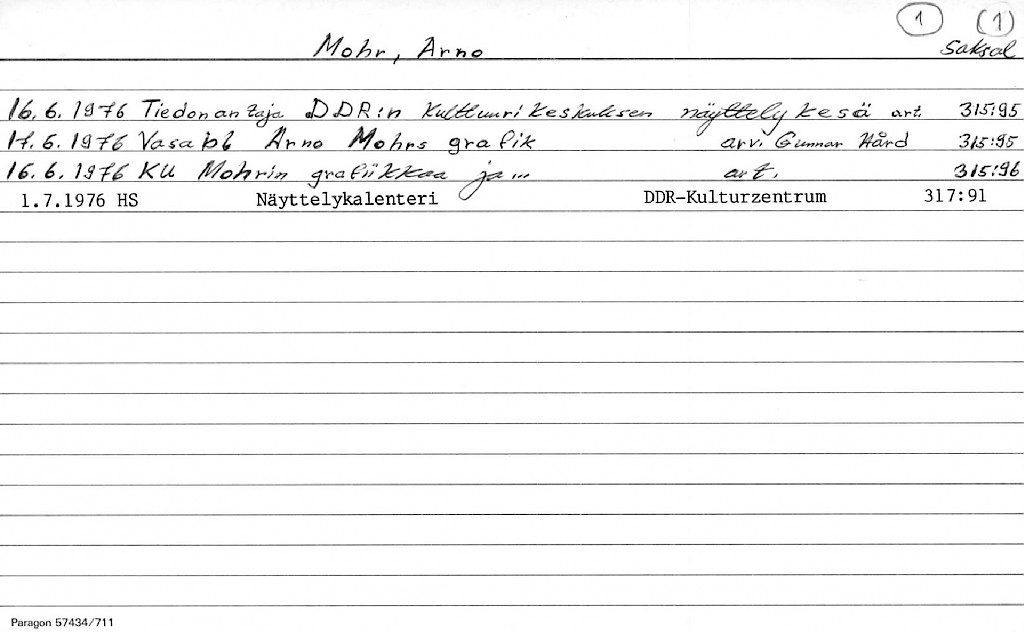 1 (1)
Mohr, Arno Saksal
16.6.1976 Tiedonantaja DDR:n Kulttuurikeskuksen näyttely kesä art. 315:95
17.6.1976 Vasabl Arno Mohrs grafik arv. Gunnar Hård 315:95
16.6.1976 KU Mohrin grafiikkaa ja... art. 315:96
1.7.1976 HS Näyttelykalenteri DDR-Kulturzentrum 317:91
Paragon 57434/711